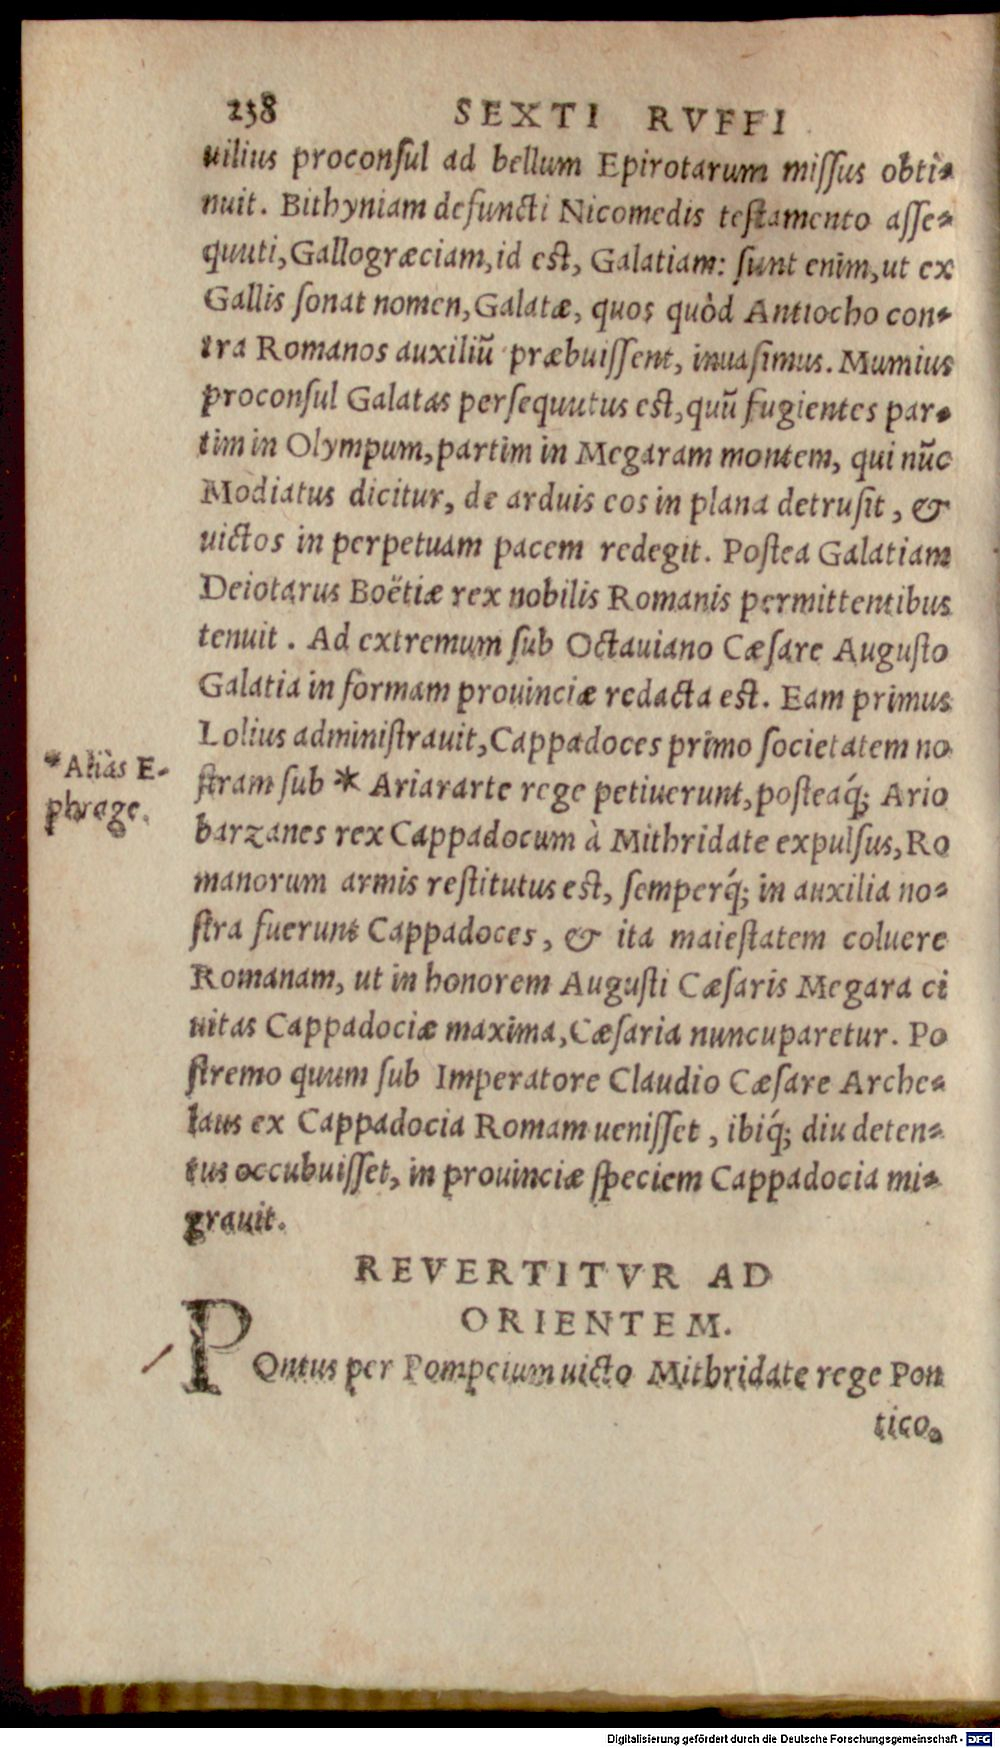 238 SEXTI RVFFI
uilius proconſul ad bellum Epirotarum miſſus obti-
nuit. Bithyniam defuncti Nicomedis teſtamento aſſe-
quuti, Gallogræciam, id eſt, Galatiam: ſunt enim, ut ex
Gallis ſonat nomen, Galatæ, quos quòd Antiocho con-
tra Romanos auxiliũ præbuiſſent, inuaſimus. Mumius
proconſul Galatas perſequutus eſt, quũ fugientes par-
tim in Olympum, partim in Megaram montem, qui nũc
Modiatus dicitur, de arduis eos in plana detruſit, &
uictos in perpetuam pacem redegit. Poſtea Galatiam
Deiotarus Boëtiæ rex nobilis Romanis permittentibus
tenuit. Ad extremum ſub Octauiano Cæſare Auguſto
Galatia in formam prouinciæ redacta eſt. Eam primus
Lolius adminiſtrauit, Cappadoces primo societatem no
ſtram ſub * Ariararte rege petiuerunt, poſteaq́; Ario
barzanes rex Cappadocum à Mithridate expulſus, Ro
manorum armis reſtitutus eſt, ſemperq́; in auxilia no-
ſtra fuerunt Cappadoces, & ita maieſtatem coluere
Romanam, ut in honorem Auguſti Cæſaris Megara ci
uitas Cappadociæ maxima, Cæſaria nuncuparetur. Po
ſtremo quum ſub Imperatore Claudio Cæſare Arche-
laus ex Cappadocia Romam ueniſſet, ibiq́; diu deten-
tus occubuiſſet, in prouinciæ ſpeciem Cappadocia mi-
grauit.
*Aliàs E-
phrage.
REVERTITVR AD
ORIENTEM.
POntus per Pompeium uicto Mithridate rege Pon
tico.
Digitalisierung gefördert durch die Deutsche Forschungsgemeinschaft - DFG